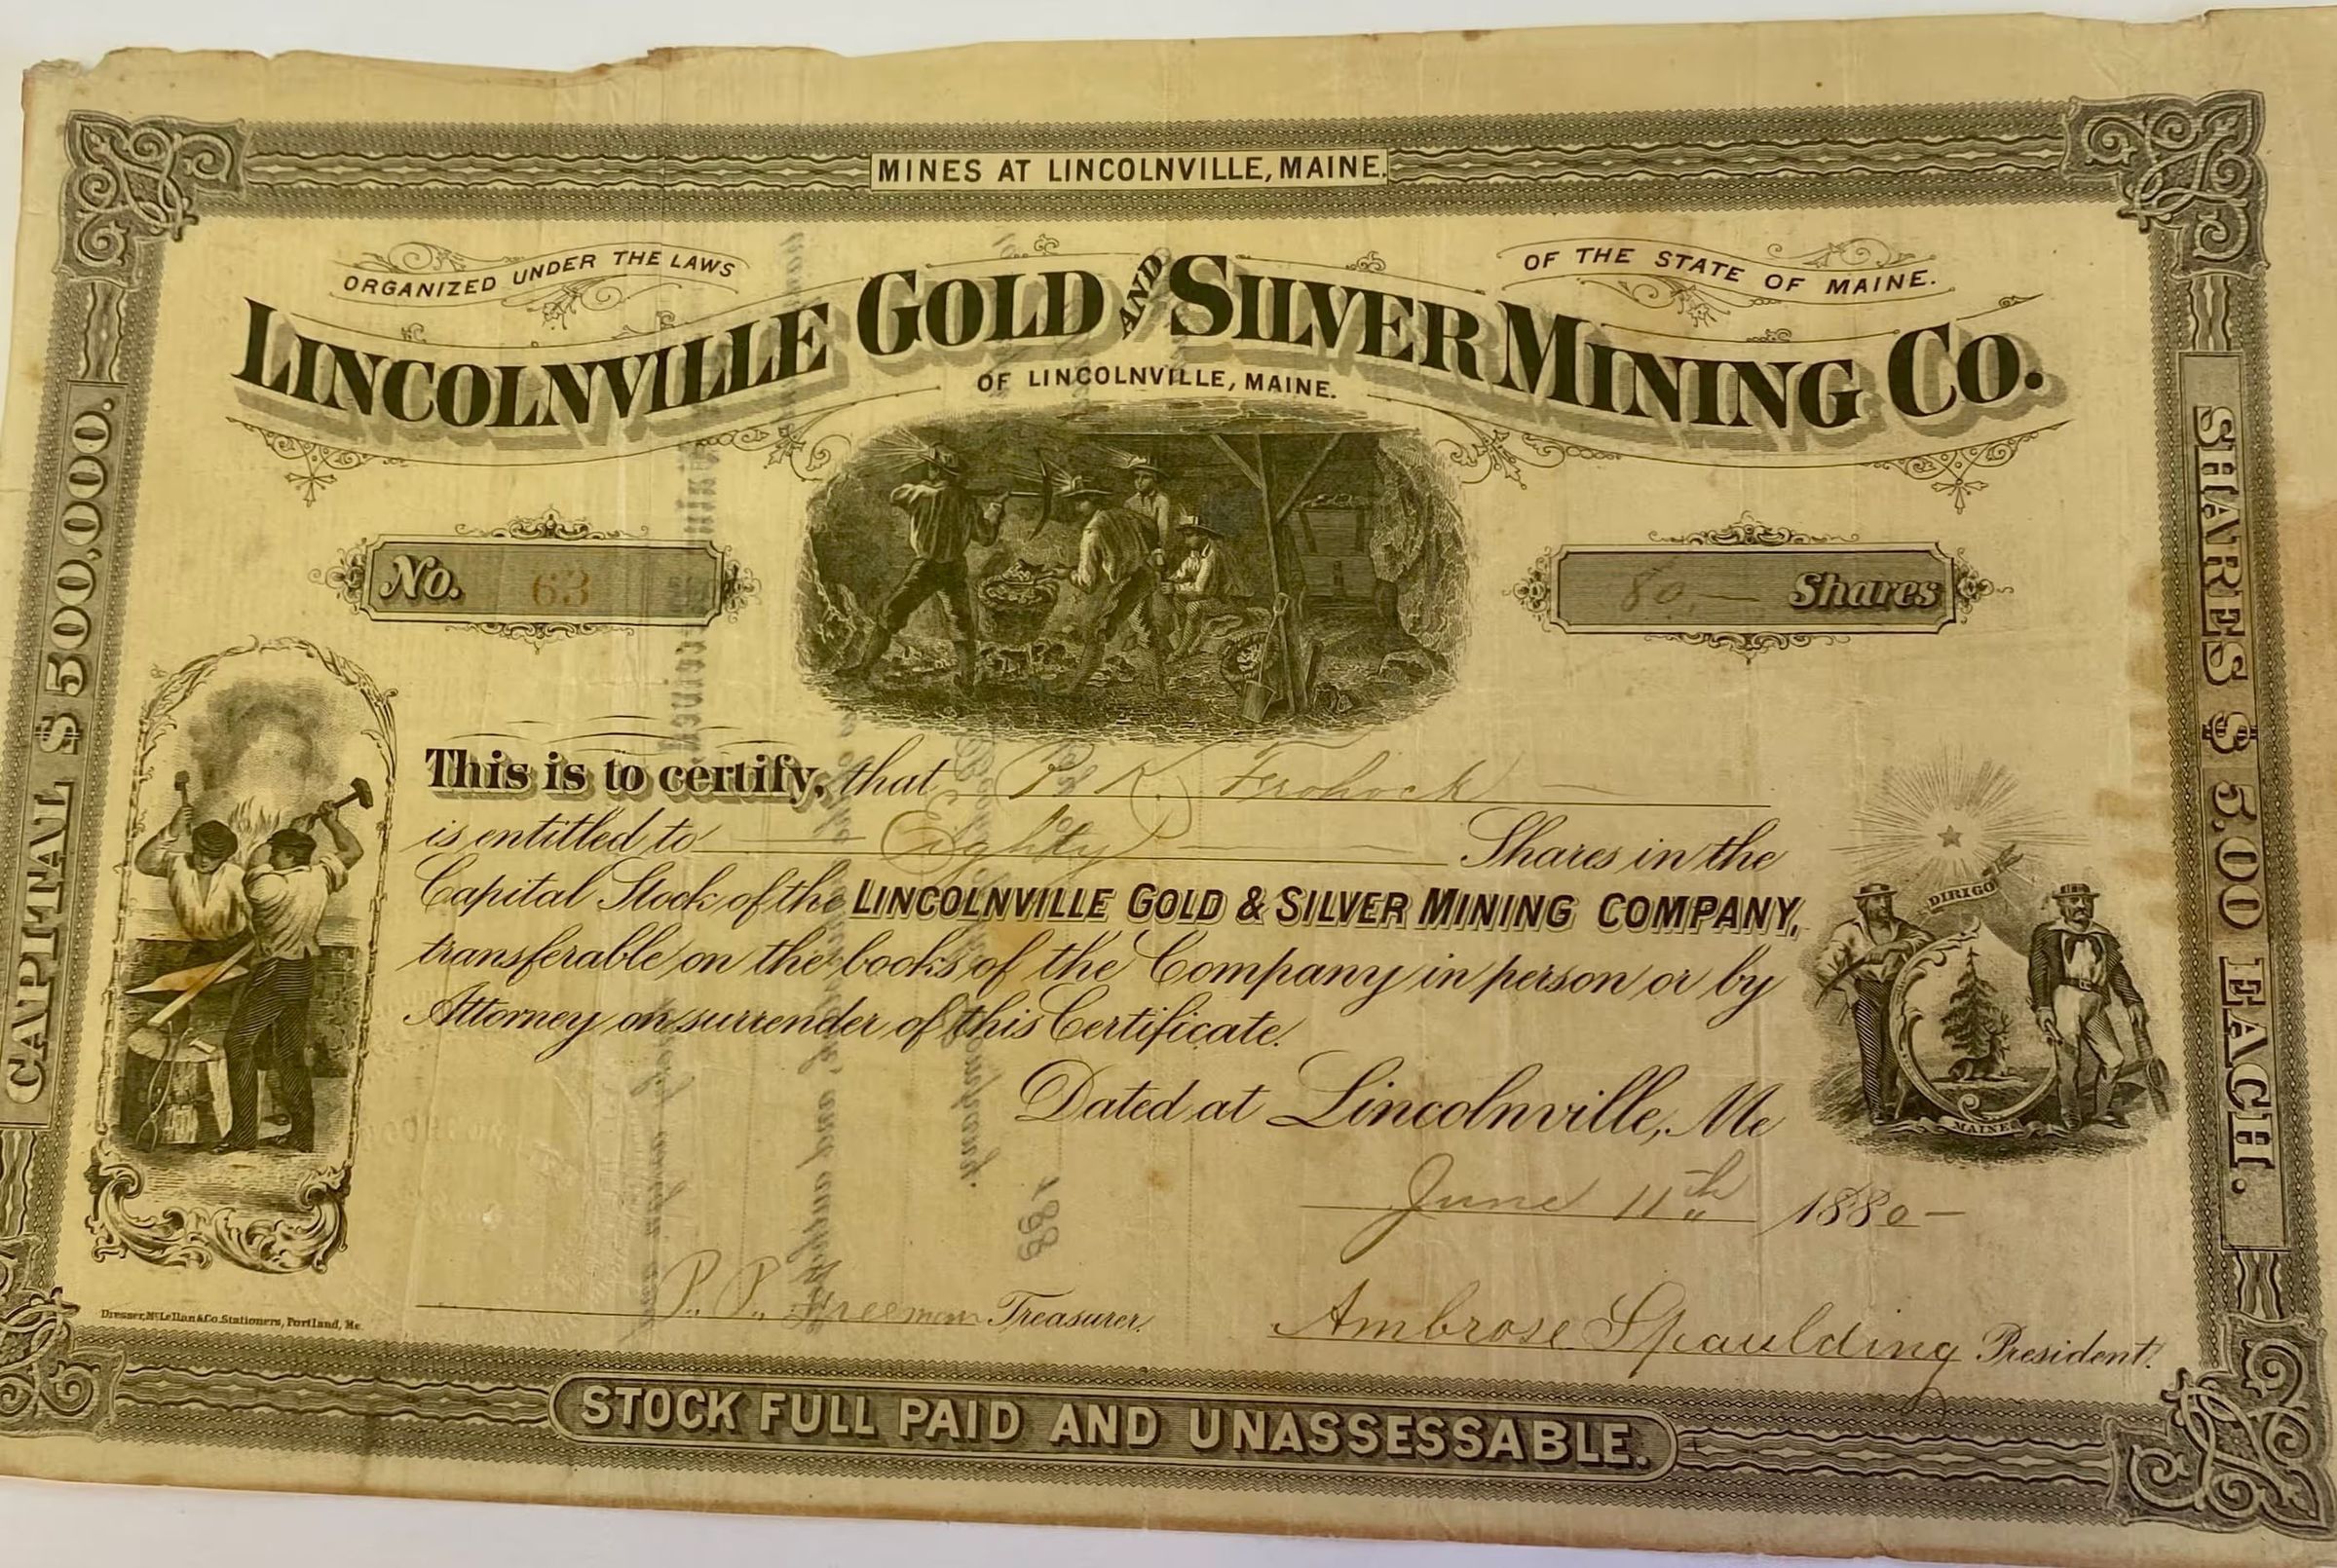 MINES AT LINCOLNVILLE, MAINE.
ORGANIZED UNDER THE LAWS
OF THE STATE OF MAINE.
LINCOLNVILLE GOLD AND SILVER MINING CO.
OF LINCOLNVILLE, MAINE.
CAPITAL $500,000.
SHARES $5.00 EACH.
No. 63
80.— Shares
This is to certify, that P. K. Frohock
is entitled to Eighty Shares in the
Capital Stock of the LINCOLNVILLE GOLD & SILVER MINING COMPANY,
transferable on the books of the Company in person or by
Attorney on surrender of this Certificate.
DIRIGO
MAINE
Dated at Lincolnville, Me
June 11th 1880-
P. P. Freeman Treasurer.
Ambrose Spaulding President.
Dresser, McLellan & Co. Stationers, Portland, Me.
STOCK FULL PAID AND UNASSESSABLE.